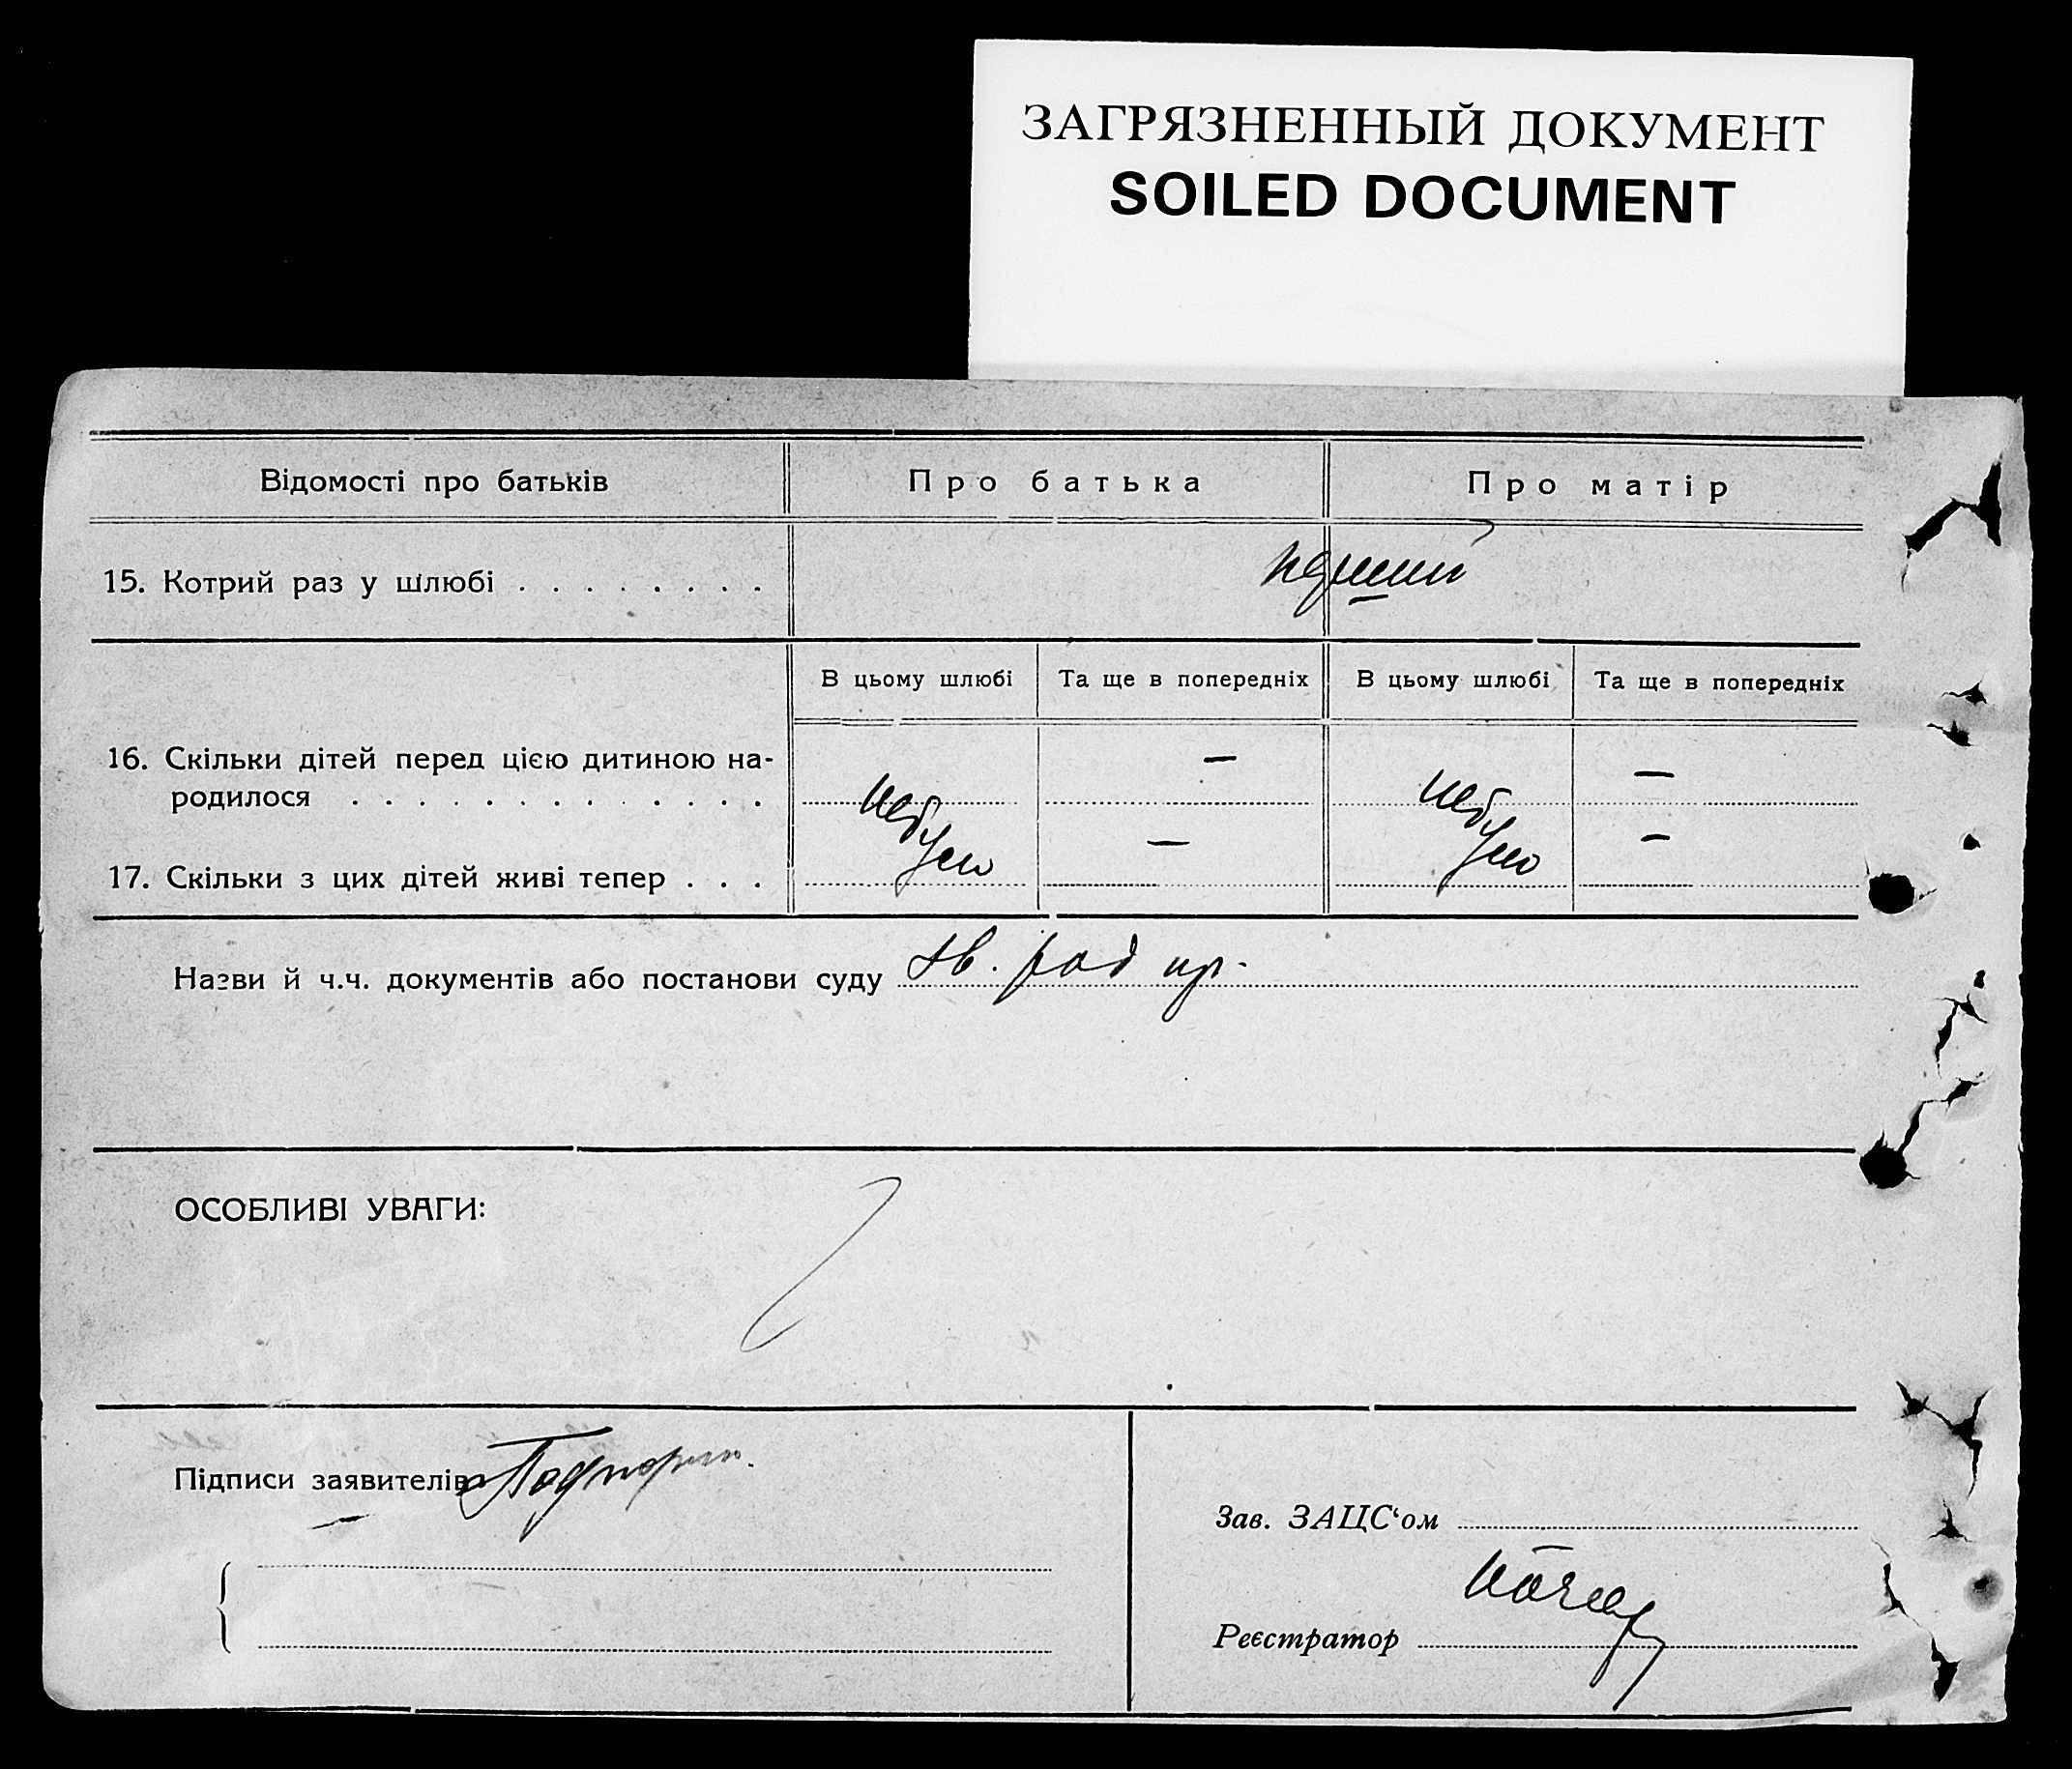 ЗАГРЯЗНЕННЫЙ ДОКУМЕНТ
SOILED DOCUMENT
Відомості про батьків Про батька Про матір
15. Котрий раз у шлюбі . . . . . . . . перший
В цьому шлюбі Та ще в попередніх В цьому шлюбі Та ще в попередніх
16. Скільки дітей перед цією дитиною на-
родилося . . . . . . . . . . . . . — —
не було не було
17. Скільки з цих дітей живі тепер . . . — —
Назви й ч.ч. документів або постанови суду
ОСОБЛИВІ УВАГИ:
Підписи заявителів
Зав. ЗАЦС‘ом
Реєстратор